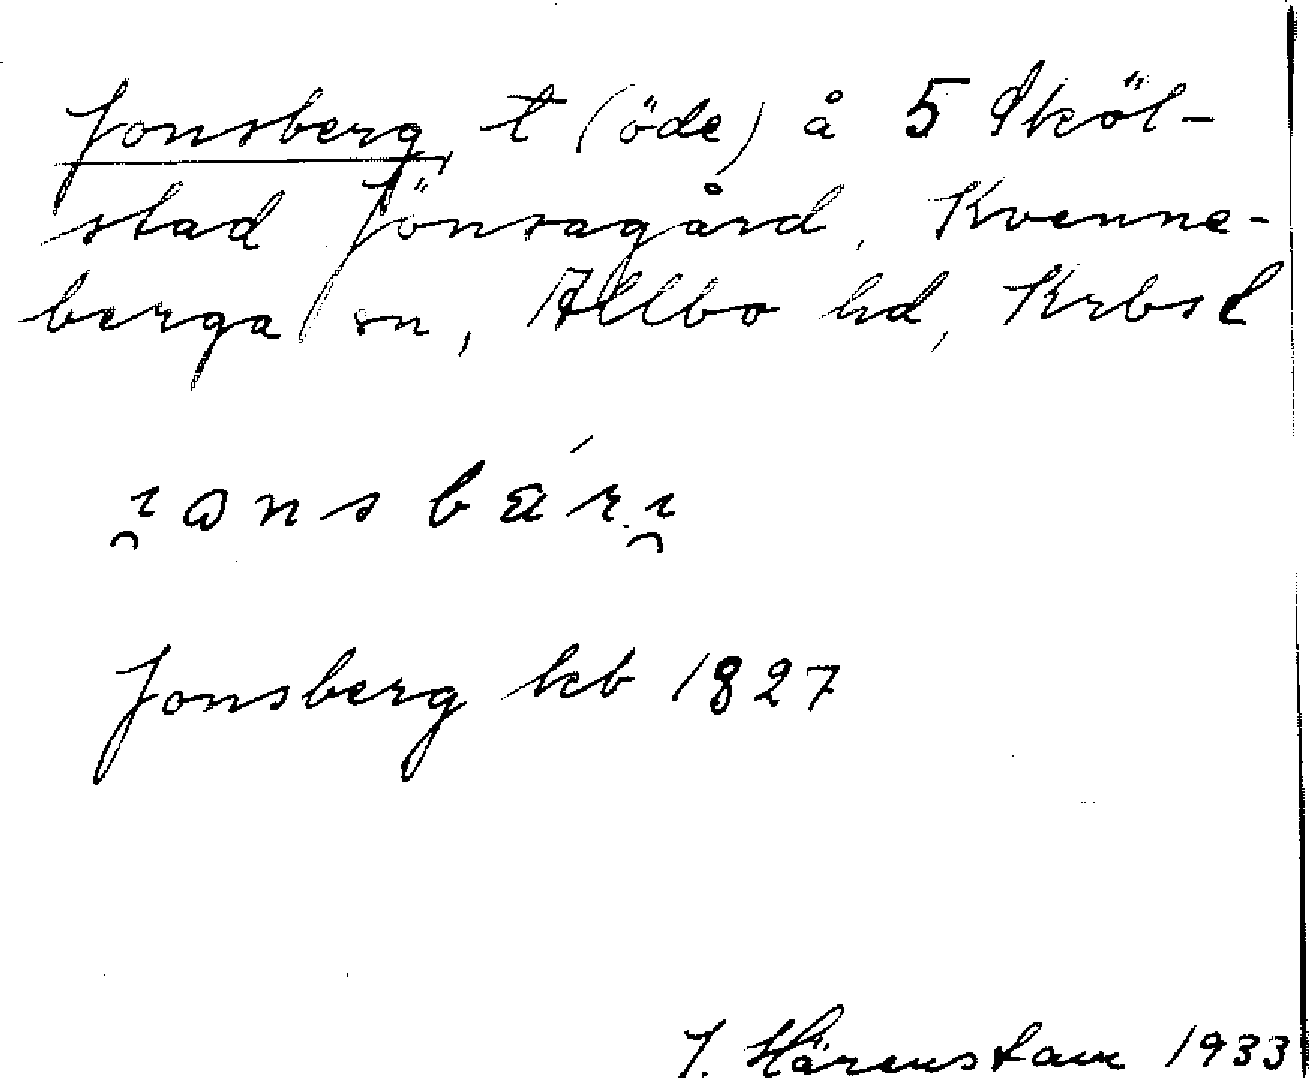 Jonsberg, t (öde) å 5 Sköl-
stad Jönsagård, Kvenne-
berga sn, Allbo hd, Krbsl
Jonsberg kb 1827
J. Härenstam 1933